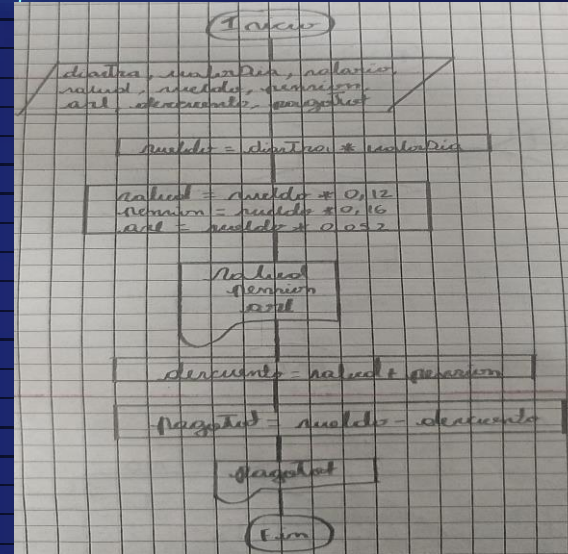 Inicio
diastra, valorDia, salario,
salud, sueldo, pension,
arl, descuento, pagotot
sueldo = diastra * valorDia
salud = sueldo * 0,12
pension = sueldo * 0,16
arl = sueldo * 0,052
salud
pension
arl
descuento = salud + pension
pagotot = sueldo - descuento
pagotot
Fin